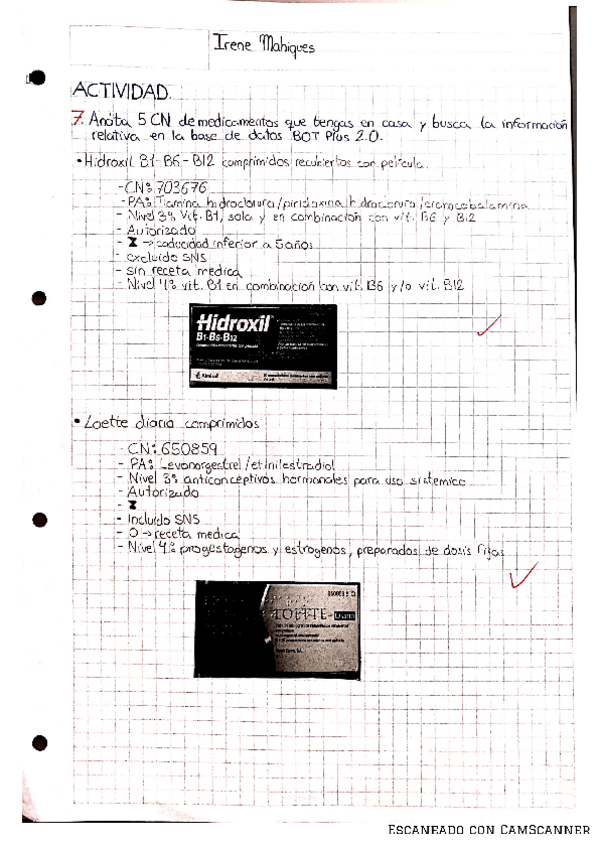 Irene Mahiques
ACTIVIDAD.
7. Anota 5 CN de medicamentos que tengas en casa y busca la información
relativa en la base de datos BOT Plus 2.0.
• Hidroxil B1-B6-B12 comprimidos recubiertos con película.
- CN: 703676
- PA: Tiamina hidrocloruro/piridoxina hidrocloruro/cianocobalamina
- Nivel 3: Vit. B1, sola y en combinación con vit. B6 y B12
- Autorizado
- ⧗ → caducidad inferior a 5 años
- excluido SNS
- sin receta medica
- Nivel 4: vit. B1 en combinación con vit. B6 y/o vit. B12
Hidroxil
B1-B6-B12
• Loette diario comprimidos
- CN: 650859
- PA: Levonorgestrel/etinilestradiol
- Nivel 3: anticonceptivos hormonales para uso sistemico
- Autorizado
- ⧗
- Incluido SNS
- O → receta medica
- Nivel 4: progestagenos y estrogenos, preparados de dosis fijas
LOETTE-Diario
Escaneado con CamScanner